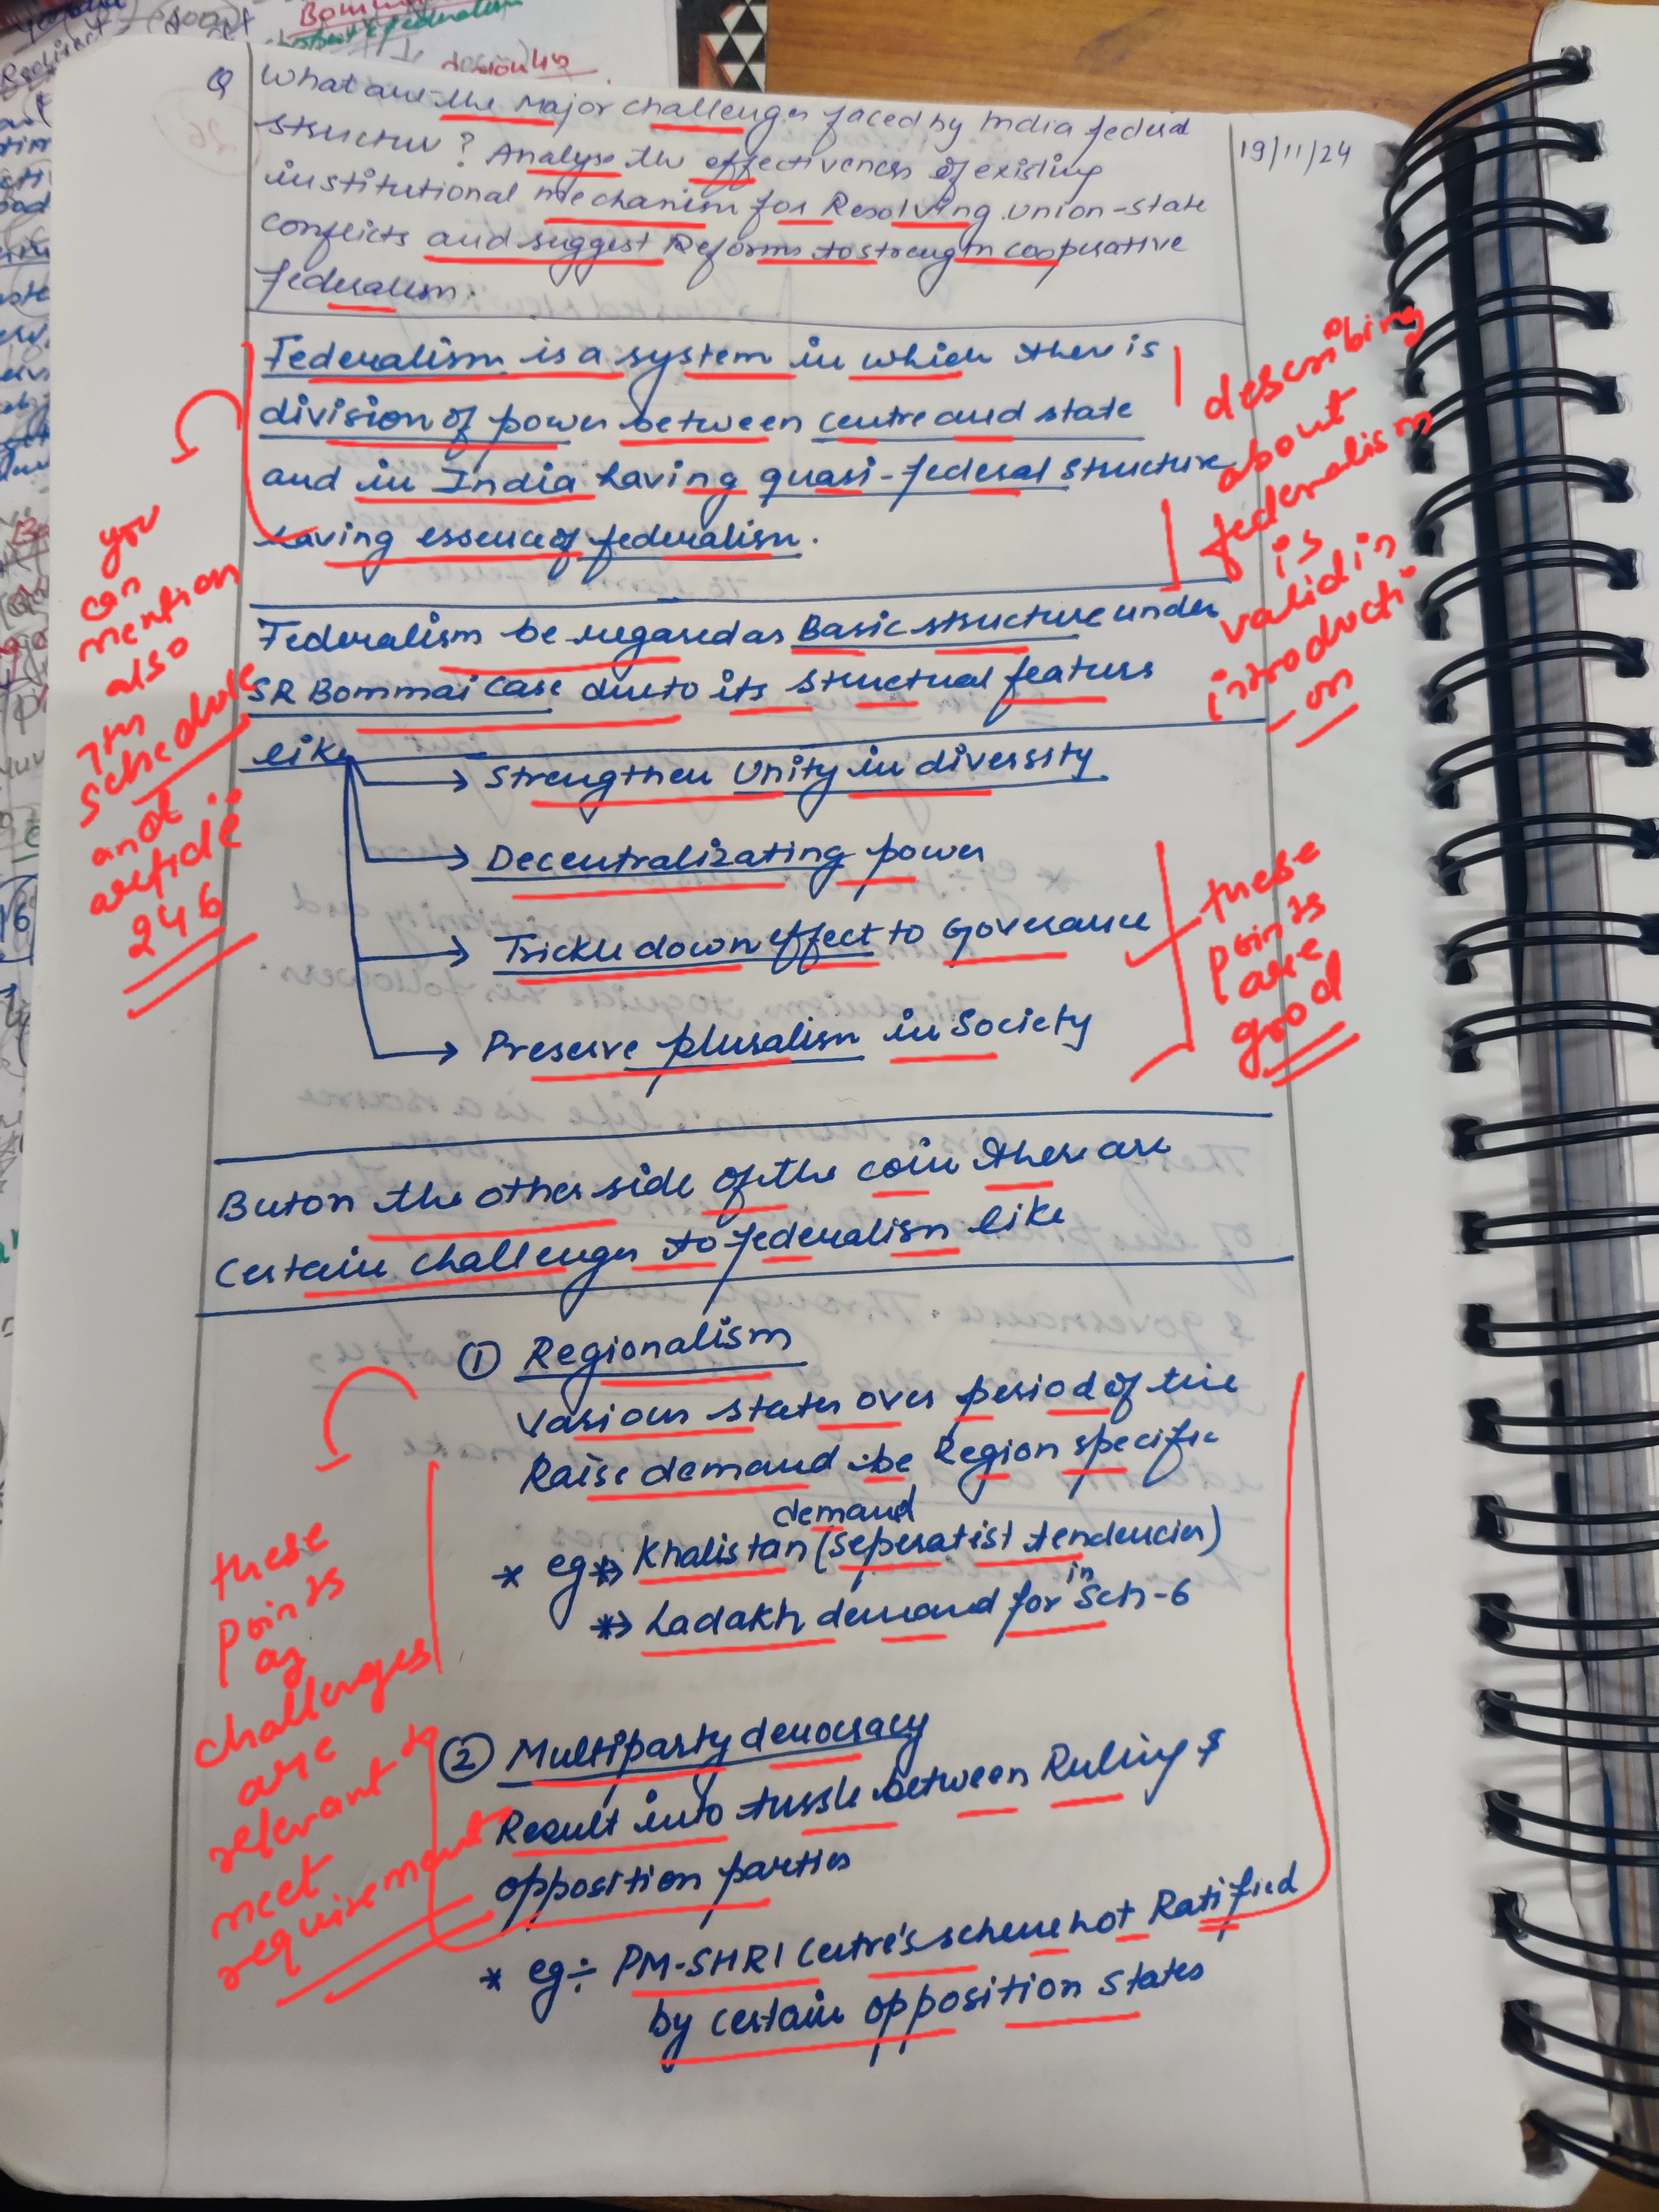 Q What are the Major challenges faced by India federal
structur? Analyse the effectiveness of existing
institutional mechanism for Resolving union-state
conflicts and suggest Reforms to strength cooperative
federalism.
19/11/24
Federalism is a system in which ther is
division of power between centre and state
and in India having quasi-federal structure
having essence of federalism.
describing
about
federalism
is
valid in
introducti
on
you
can
mention
also
7th
schedule
and
article
246
Federalism be regared as Basic structure under
SR Bommai case due to its structual featurs
like
→ Strengthen Unity in diversity
→ Decentralizating power
→ Trickle down effect to Governance
→ Preserve pluralism in Society
these
points
are
good
But on the other side of the coin there are
certain challenges to federalism like
① Regionalism
various states over period of time
Raise demand be Region specific
demand
* eg *> Khalistan (seperatist tendencies)
*> Ladakh demand for in Sch-6
these
points
as
challenges
are
relevant to
meet
requirement
② Multiparty democracy
Result into tussle between Ruling &
opposition parties
* eg ÷ PM-SHRI Centre's scheme not Ratified
by certain opposition states